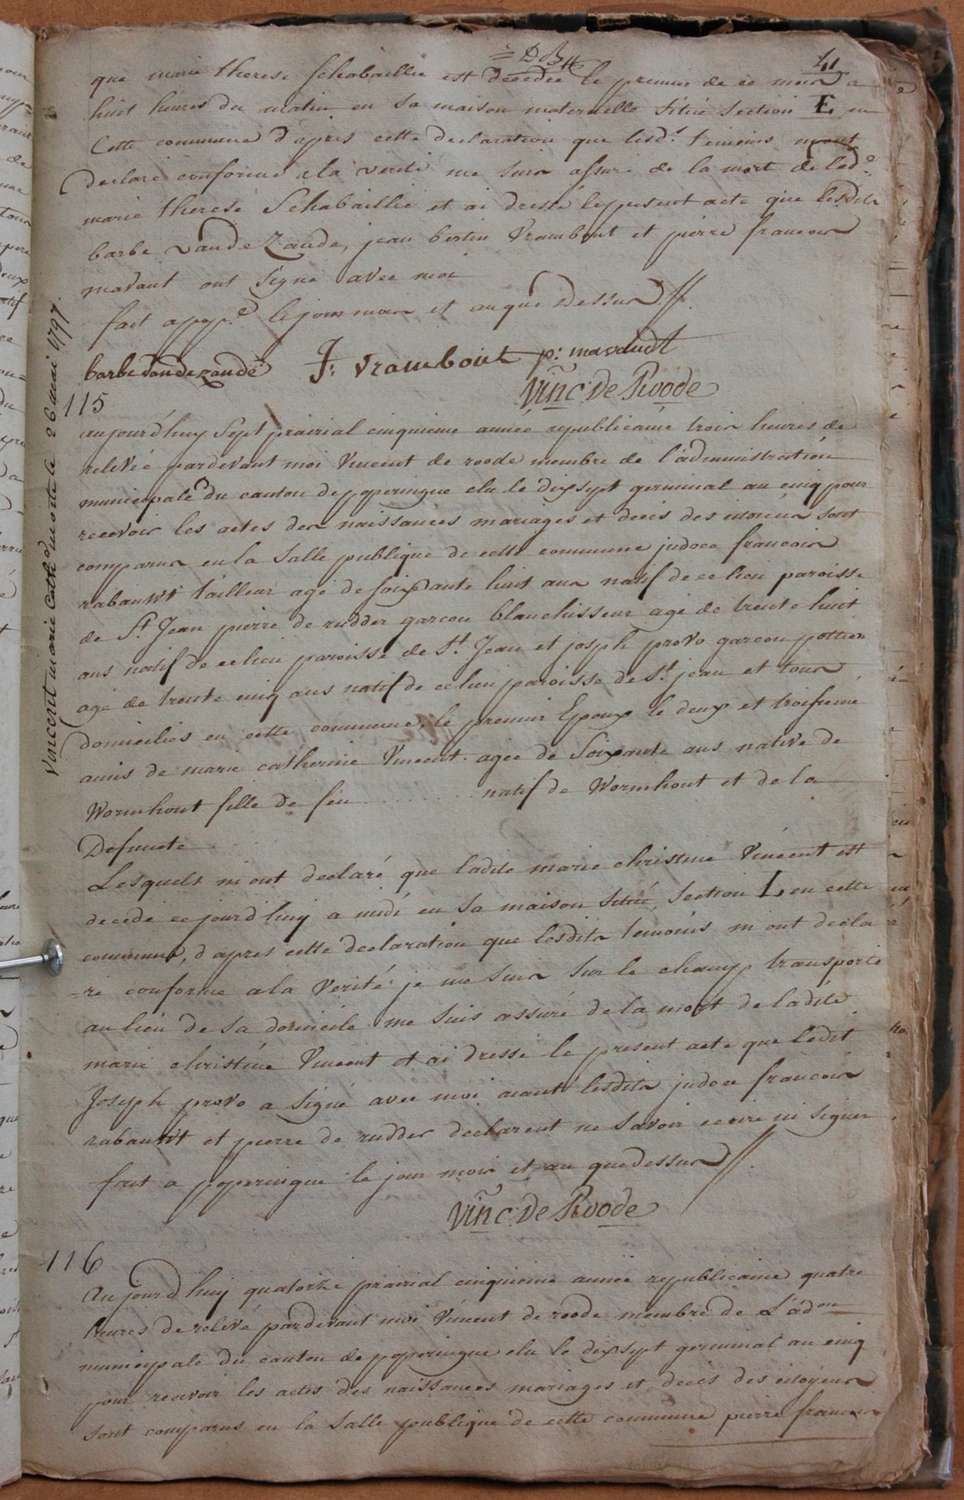 41
que marie therese Schabaillie est decedée le premier de ce mois a
huit heures du matin en sa maison maternelle Situé Section E en
Cette commune d'apres cette declaration que lesd.t temoins m'ont
declaré conforme a la verité me suis assuré de la mort de lad.e
marie therese Schabaillie et ai dressé le present acte que lesdits
barbe VandeZande, jean bertin Vrambout et pierre francois
mavaut ont signé avec moi
fait a pop.e le jour mois et an que Dessus
barbe vandezande J: Vrambout p: mavaudt
Vinc: De Roode
Vincent marie Cath: morte le 26 mai 1797.
115
aujourd'huy Sept prairial cinquieme année republicaine trois heures de
relevée pardevant moi Vincent de roode membre de l'administration
municipale du canton de poperingue elu le dixsept germinal an cinq pour
recevoir les actes des naissances mariages et deces des citoyens sont
comparus en la Salle publique de cette commune judoce francois
rabauwt tailleur agé de soixante huit ans natif de ce lieu paroisse
de St. Jean pierre de rudder garcon blanchisseur agé de trente huit
ans natif de ce lieu paroisse de St. Jean et joseph provo garcon pottier
agé de trente cinq ans natif de ce lieu paroisse de St. jean et tous
domiciliés en cette commune, le premier Epoux le deux et troisieme
amis de marie catherine Vincent agée de Soixante ans native de
Wormhout fille de feu ........ natif de Wormhout et de la
Defuncte
Lesquels m'ont declaré que ladite marie christine Vincent est
decedé ce jourd'huy a midi en sa maison Situé Section L en cette
commune, d'apres cette declaration que lesdits temoins m'ont decla
-ré conforme a la Verité je me suis sur le champ transporté
au lieu de sa domicile me suis assuré de la mort de ladite
marie christine Vincent et ai dressé le present acte que ledit
Joseph provo a signé avec moi aiant lesdits judoce francois
rabauwt et pierre de rudder declarent ne savoir ecrire ni signer
fait a poperingue le jour mois et an quedessus
Vinc: De Roode
116
Aujourd'huy quatorze prairial cinquieme année republicaine quatre
heures de relevé pardevant moi Vincent de roode membre de L'ad.on
municipale du canton de poperingue elu le dixsept germinal an cinq
pour recevoir les actes des naissances mariages et deces des citoyens
sont comparus en la Salle publique de cette commune pierre francois